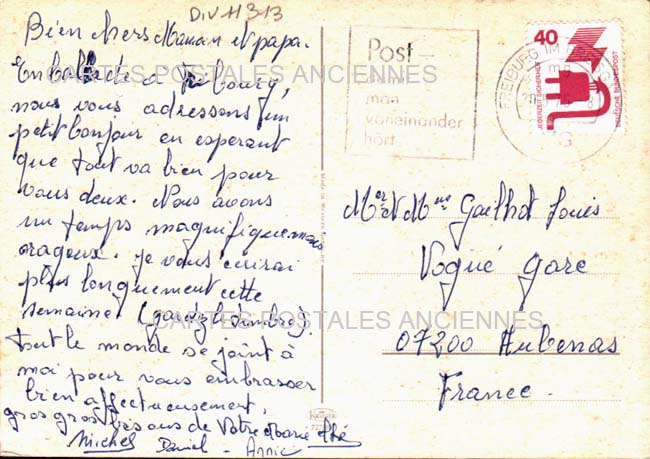 DIV 11 313
Bien chers Maman et papa.
En balade à Fribourg,
nous vous adressons un
petit bonjour en esperant
que tout va bien pour
vous deux. Nous avons
un temps magnifique mais
orageux. je vous écrirai
plus longuement cette
semaine (gardez le timbre).
tout le monde se joint à
moi pour vous embrasser
bien affectueusement.
gros gros bisous de Votre Marie
Michel Daniel - Annie
CARTES POSTALES ANCIENNES
CARTES POSTALES ANCIENNES
Post
man
voneinander
hört
FREIBURG IM
40
JEDERZEIT SICHERHEIT
DEUTSCHE BUNDESPOST
Mr et Mme Gailhot Louis
Vogué Gare
07200 Aubenas
France.